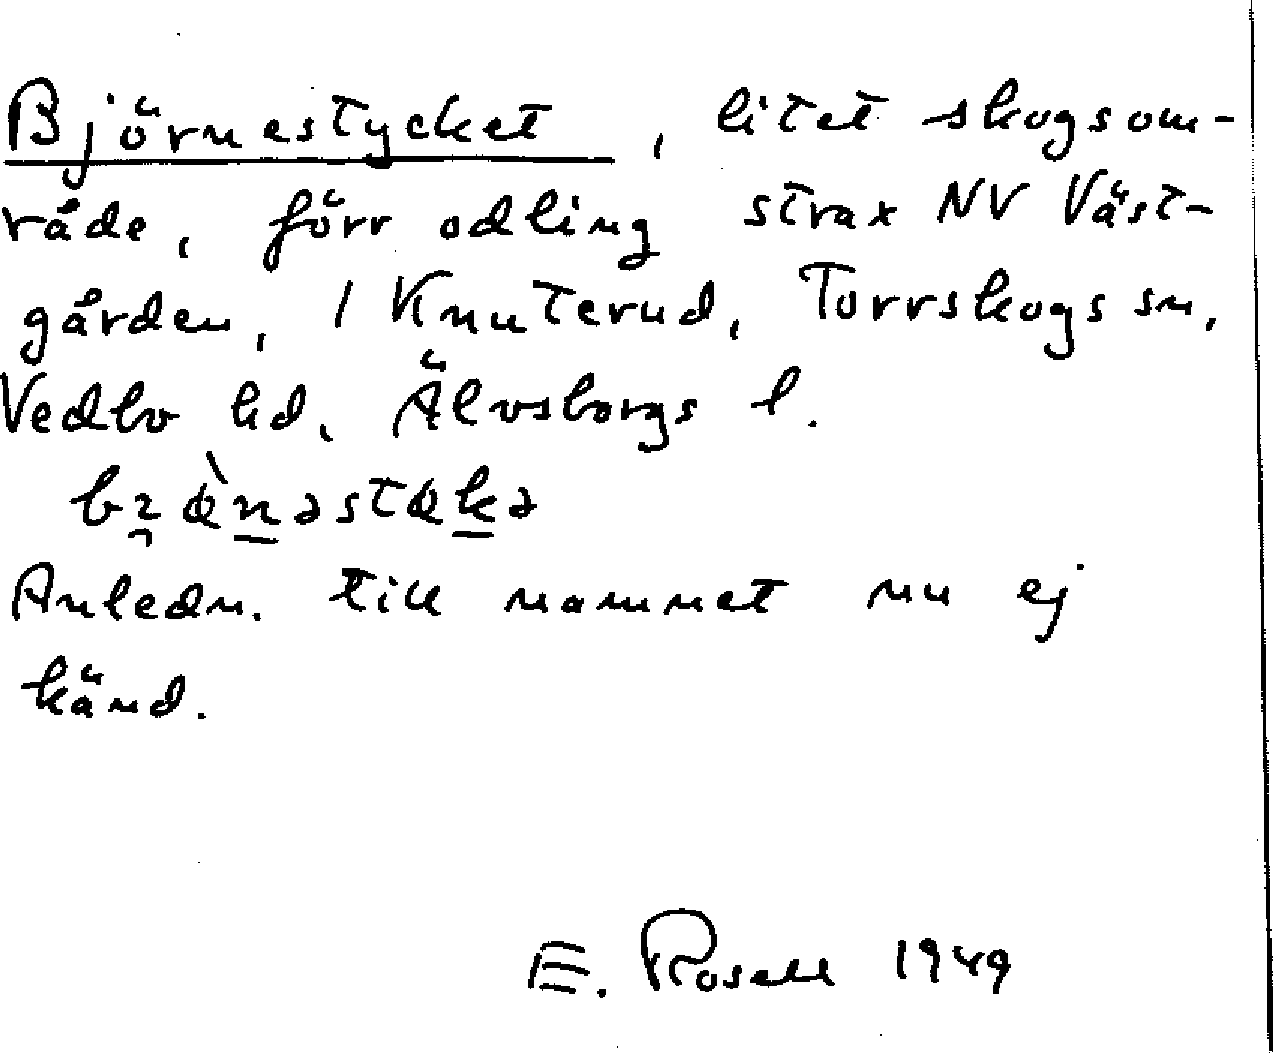 Björnestycket, litet skogsom-
råde, förr odling strax NV Väst-
gården, 1 Knuterud, Torrskogs sn,
Vedbo hd, Älvsborgs l.
Anledn. till namnet nu ej
känd.
E. Rosell 1949